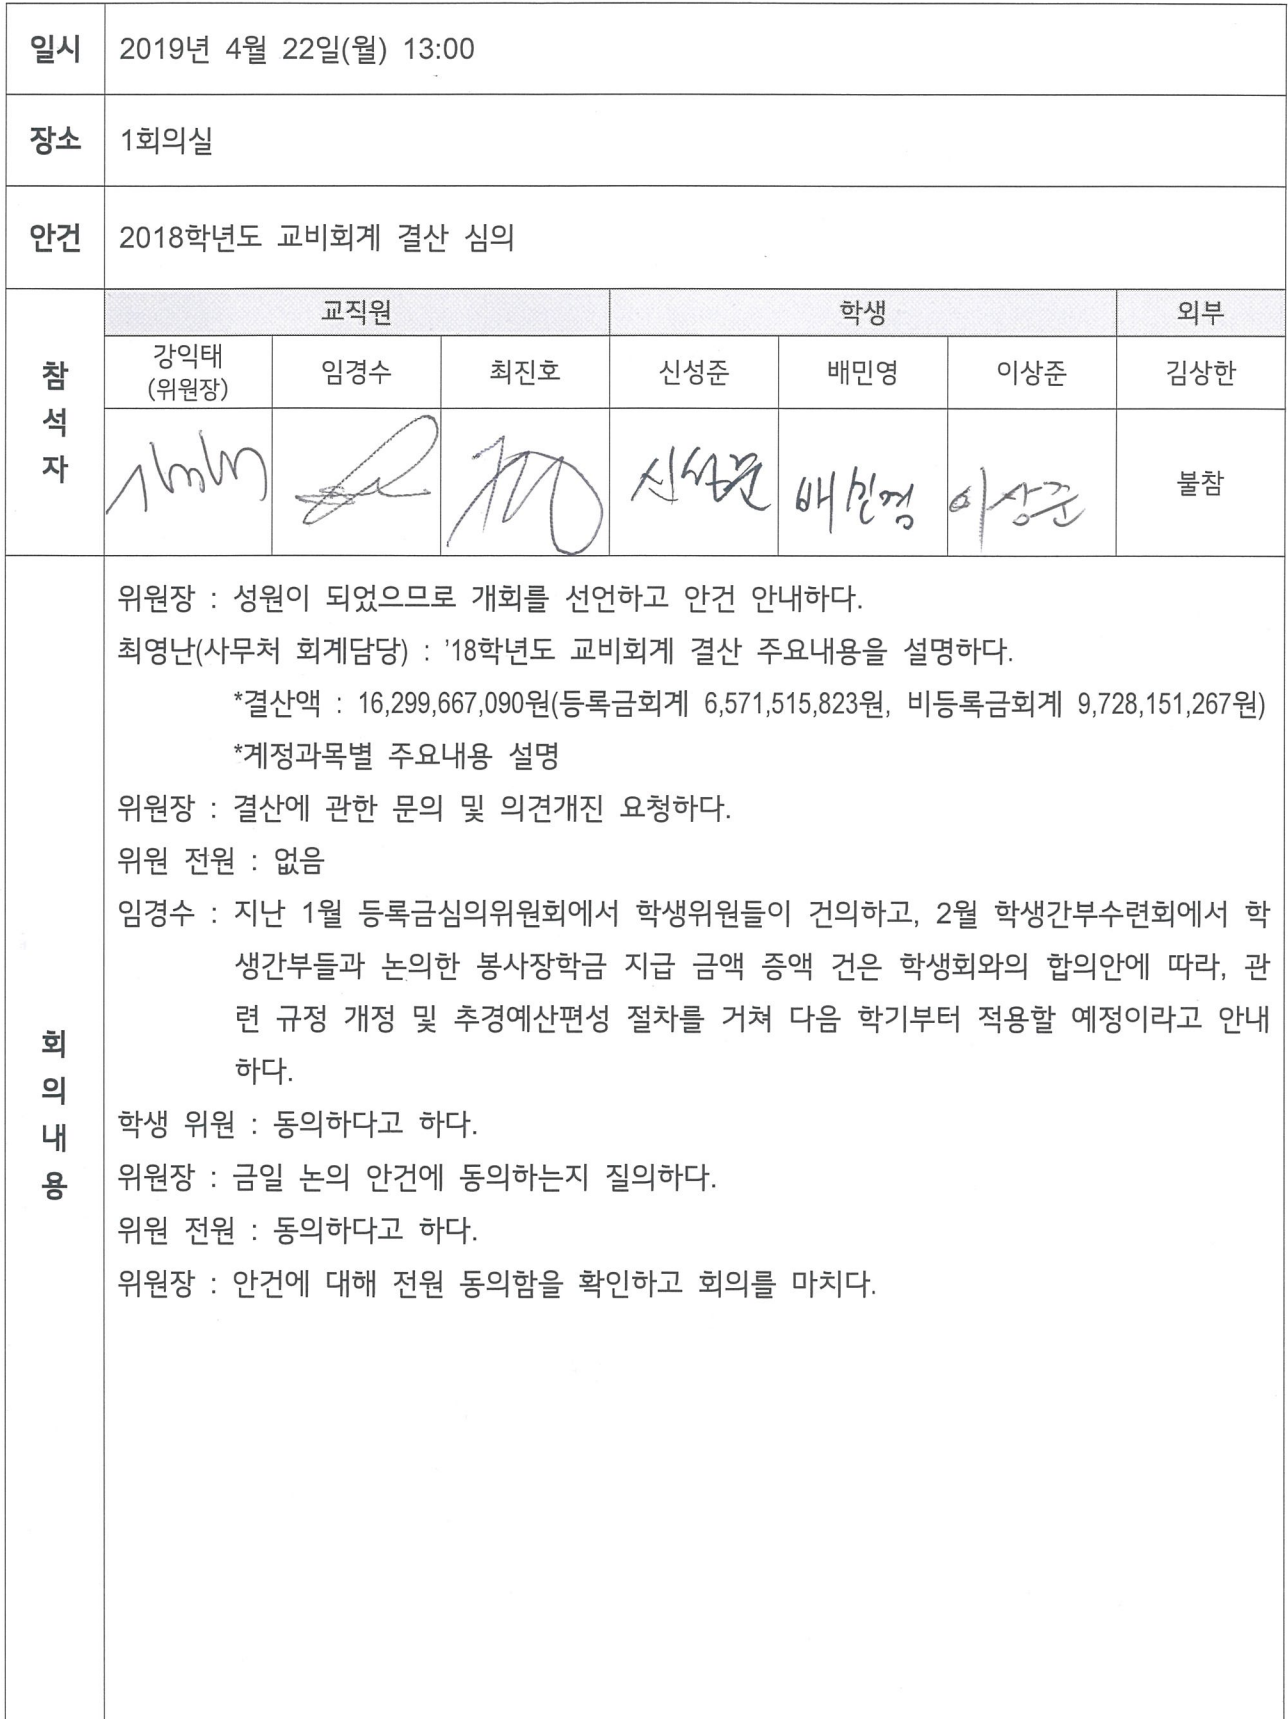 일시 2019년 4월 22일(월) 13:00
장소 1회의실
안건 2018학년도 교비회계 결산 심의
참석자
교직원 학생 외부
강익태 (위원장) 임경수 최진호 신성준 배민영 이상준 김상한
신성준 배민영 이상준 불참
회의내용
위원장 : 성원이 되었으므로 개회를 선언하고 안건 안내하다.
최영난(사무처 회계담당) : '18학년도 교비회계 결산 주요내용을 설명하다.
*결산액 : 16,299,667,090원(등록금회계 6,571,515,823원, 비등록금회계 9,728,151,267원)
*계정과목별 주요내용 설명
위원장 : 결산에 관한 문의 및 의견개진 요청하다.
위원 전원 : 없음
임경수 : 지난 1월 등록금심의위원회에서 학생위원들이 건의하고, 2월 학생간부수련회에서 학
생간부들과 논의한 봉사장학금 지급 금액 증액 건은 학생회와의 합의안에 따라, 관
련 규정 개정 및 추경예산편성 절차를 거쳐 다음 학기부터 적용할 예정이라고 안내
하다.
학생 위원 : 동의하다고 하다.
위원장 : 금일 논의 안건에 동의하는지 질의하다.
위원 전원 : 동의하다고 하다.
위원장 : 안건에 대해 전원 동의함을 확인하고 회의를 마치다.